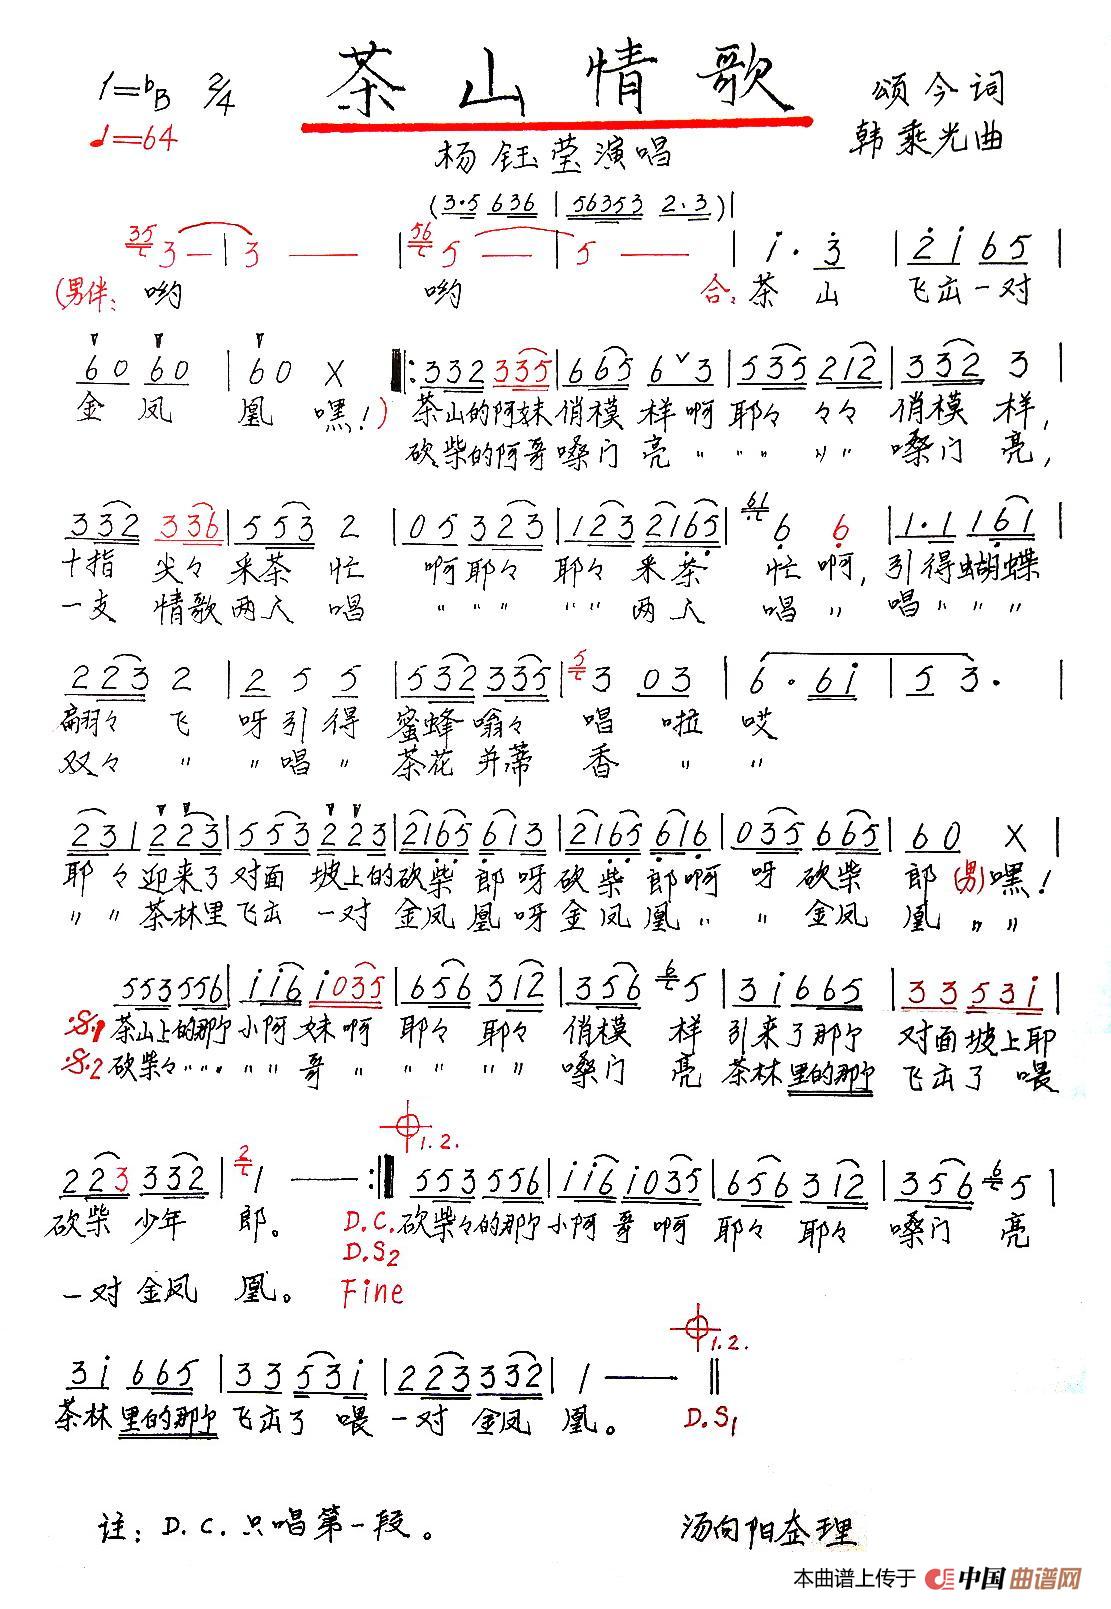 茶山情歌
1=♭B 2/4
♩=64
颂今词
韩乘光曲
杨钰莹演唱
(3·5 636 | 56353 2·3)|
35 3 — | 3 — — | 56 5 — | 5 — — | i · 3 | 2 i 6 5 |
(男伴: 哟 哟 合: 茶 山 飞出一对
60 60 | 60 X ‖: 332 335 | 665 6ˇ3 | 535 212 | 332 3 |
金 凤 凰 嘿!) 茶山的阿妹 俏模 样 啊 耶々 々々 俏模 样,
砍柴的阿哥 嗓门 亮 〃 〃 〃 〃 〃 嗓门 亮,
332 336 | 553 2 | 05 323 | 123 2165 | 61 6 6 | 1·1 161 |
十指 尖々 采茶 忙 啊 耶々 耶々 采茶 忙 啊, 引得蝴蝶
一支 情歌 两人 唱 〃 〃〃 〃〃 两人 唱 〃 唱 〃 〃 〃
223 2 | 2 5 5 | 532 335 | 5 3 03 | 6 · 6i | 5 3 · |
翩々 飞 呀 引 得 蜜蜂 嗡々 唱 啦 哎
双々 〃 〃 唱 〃 茶花 并蒂 香 〃 〃
231 223 | 553 223 | 2165 613 | 2165 616 | 035 665 | 60 X |
耶 々 迎来了 对面 坡上的 砍柴 郎 呀 砍柴 郎 啊 呀 砍柴 郎 (男)嘿!
〃 〃 茶林里 飞出 一对 金凤 凰 呀 金凤 凰 〃 〃 金凤 凰 〃 〃
553 556 | i i6 i035 | 656 312 | 356 6 5 | 3i 665 | 3353i |
𝄋1 茶山上的那个 小阿 妹 啊 耶々 耶々 俏模 样 引来了那个 对面坡上耶
𝄋2 砍柴々〃〃〃 〃〃 哥 〃 〃〃 〃〃 嗓门 亮 茶林里的那个 飞出了 喂
1.2.
223 332 | 2 1 — :‖ 553 556 | i i6 i035 | 656 312 | 356 6 5 |
砍柴 少年 郎。 D.C. 砍柴々的那个 小阿 哥 啊 耶々 耶々 嗓门 亮
D.S2
一对 金凤 凰。 Fine
1.2.
3i 665 | 3353i | 223 332 | 1 — ‖
茶林里的那个 飞出了 喂 一对 金凤 凰。 D.S1
注: D.C.只唱第一段。
汤向阳整理
本曲谱上传于 中国曲谱网